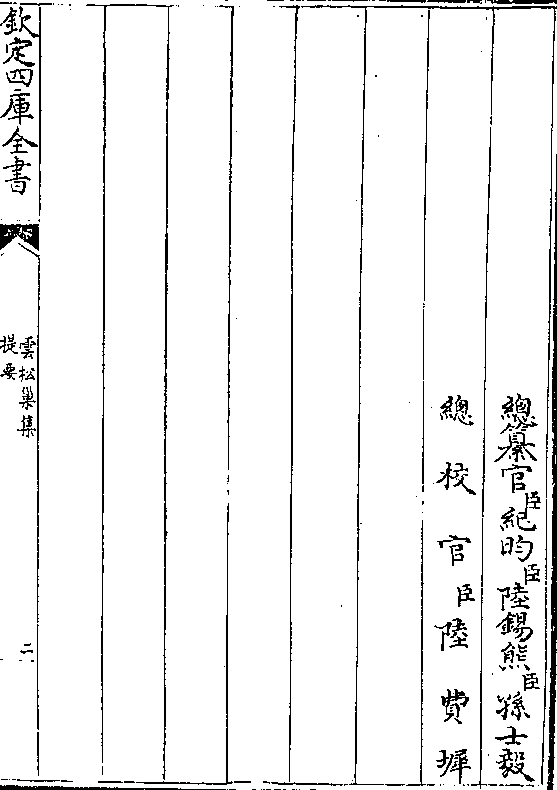 總纂官臣紀昀臣陸錫熊臣孫士毅
總校官臣陸費墀
欽定四庫全書
雲松巢集
提要
二